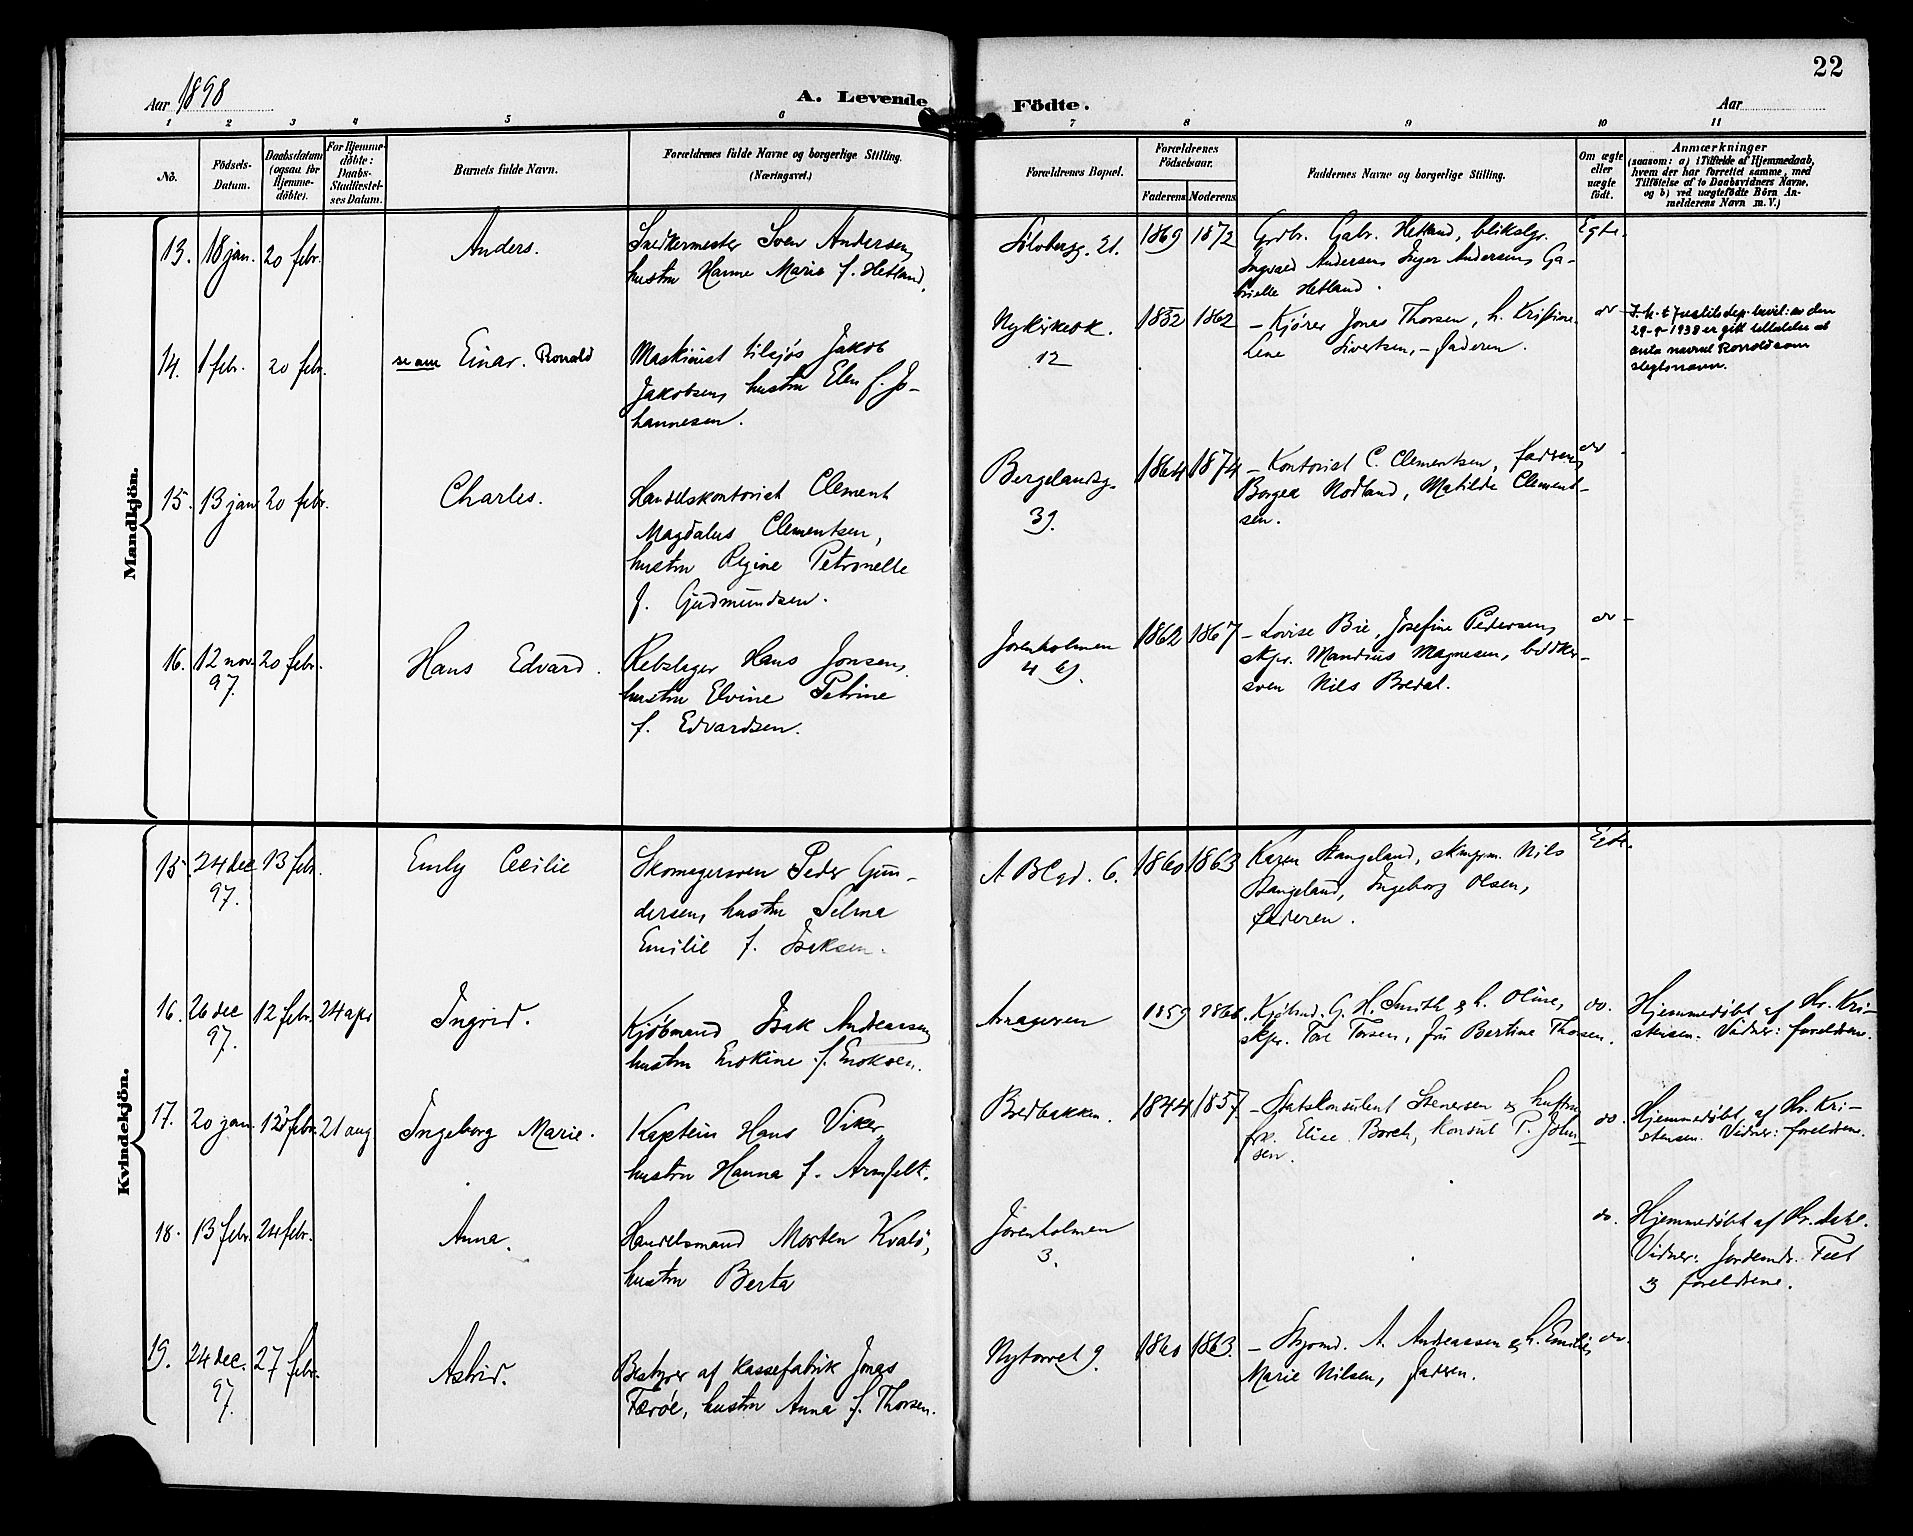 22
Aar 1898
A. Levende Födte.
Aar
1 2 3 4 5 6 7 8 9 10 11
No.
Födsels-
Datum.
Daabsdatum
(ogsaa for
Hjemme-
döbte).
For Hjemme-
döbte:
Daabs-
Stadfæstel-
ses Datum.
Barnets fulde Navn.
Forældrenes fulde Navne og borgerlige Stilling.
(Næringsvei.)
Forældrenes Bopæl.
Forældrenes
Födselsaar.
Faderens
Moderens
Faddernes Navne og borgerlige Stilling.
Om ægte
eller
uægte
födt.
Anmærkninger
(saasom: a) i Tilfælde af Hjemmedaab,
hvem der har forrettet samme, med
Tilföielse af to Daabsvidners Navne,
og b) ved uægtefödte Börn An-
melderens Navn m. V.)
Mandkjön.
13. 18 jan. 20 febr. Anders.
Snedkermester Sven Andersen,
hustru Hanne Marie f. Hetland.
Sölvbergg. 21. 1869 1872
Grdbr. Gabr. Hetland, blikslgr.
Ingvald Andersen, Inger Andersen, Ga-
brielle Hetland.
Egte.
14. 1 febr. 20 febr. Einar. Ronald
Maskinist tilsjøs Jakob
Jakobsen, hustru Elen f. Jo-
hannesen.
Nykirkebk.
12
1832 1862
– Kjører Jonas Thorsen, h. Kristine.
Lene Sivertsen, – faderen.
do
29-8-1938 er gitt tillatelse at
anta navnet Ronold som
slegtsnavn.
15. 13 jan. 20 febr. Charles.
Handelskontorist Clement
Magdalus Clementsen,
hustru Regine Petronelle
f. Gudmundsen.
Bergelandsg.
39.
1864 1874
– Kontorist C. Clementsen, faderen,
Borgea Nodland, Matilde Clement-
sen.
do
16. 12 nov. 20 febr. Hans Edvard.
97.
Rebslager Hans Jonsen,
hustru Elvine Petrine
f. Edvardsen.
Jorenholmen
1862 1867
– Lovise Bie, Josefine Pedersen,
skpr. Mandius Magnesen, bødker-
sven Nils Bredal.
do –
Kvindekjön.
15. 24 dec 13 febr. Emly Cecilie
97.
Skomagersven Peder Gun-
dersen, hustru Selma
Emilie f. Isaksen.
A B Cgd. 6. 1860 1863
Karen Stangeland, Nils
Stangeland, Ingeborg Olsen,
faderen.
Egte.
16. 26 dec 12 febr. 24 apr Ingrid.
97.
Kjøbmand Isak Andreassen
hustru Enokine f. Enoksen.
Arageren 1859 1866
Kjøbmd. G. H. Smith & h. Oline,
skpr. Tore Torsen, frk Bertine Thorsen.
do.
Hjemmedøbt af Hr. Kri-
stensen. Vidner: foreldrene.
17. 20 jan. 12 febr. 21 aug Ingeborg Marie.
Kaptein Hans Viker,
hustru Hanna f. Armfelt.
Bredbakken. 1844 1857
– Statskonsulent Stenersen & hustru
frk. Elise Borch, Konsul P. John-
sen.
do.
Hjemmedøbt af Hr. Kri-
stensen. Vidner: foreldrene.
18. 13 febr. 24 febr. Anna.
Handelsmand Morten Kvalø,
hustru Berta
Jorenholmen
3.
do.
Hjemmedøbt af Hr. Dahl.
Vidner: Jordemdr. Feet
& foreldrene.
19. 24 dec. 27 febr. Astrid.
97.
Bestyrer af Kassefabrik Jonas
Færøe, hustru Anna f. Thorsen.
Nytorvet 9. 1860 1863.
– A. Andreassen & h. Emilie,
Marie Nilsen, faderen.
do.